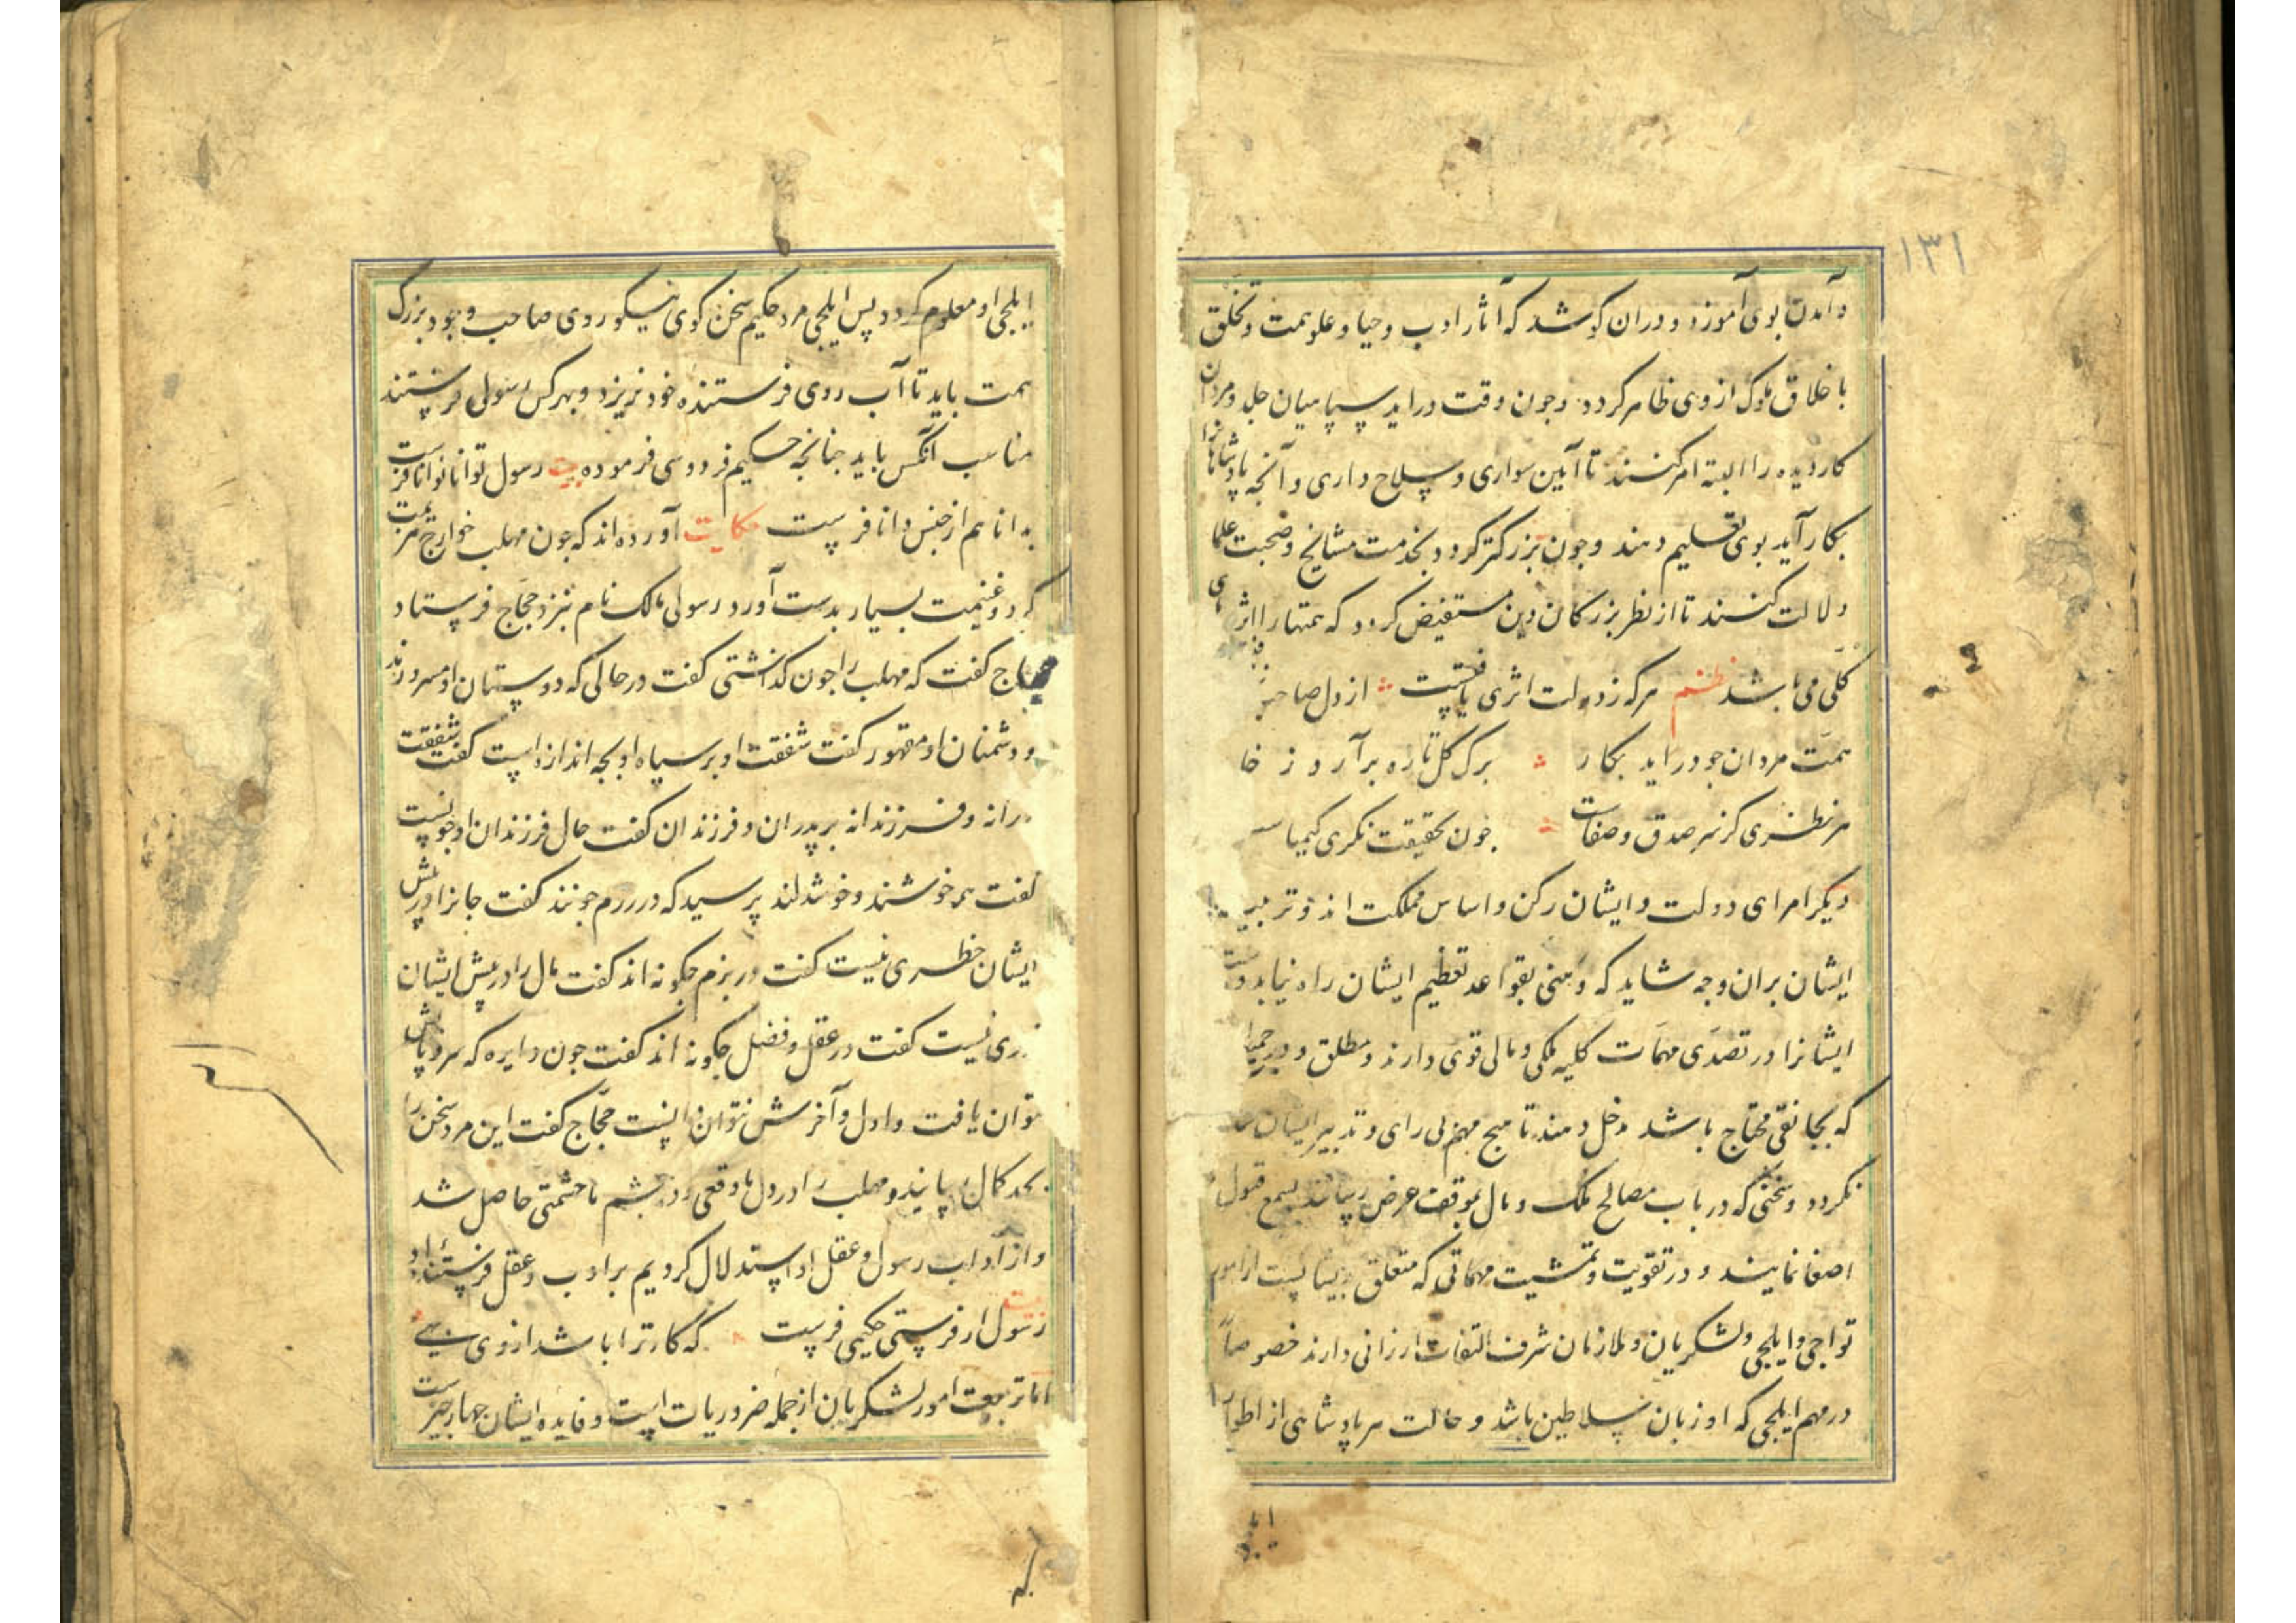 ۱۳۱
و آمدن بوی آموزد و دران کوشد که آثار ادب و حیا و علو همت و تخلق
باخلاق ملوک از وی ظاهر کردد و جون وقت دراید سپاهیان جلد و مردان
کار دیده را البته امر کنند تا آیین سواری و سلاح داری و آنجه پادشاهانرا
بکار آید بوی تعلیم دهند و جون بزرکتر کردد بخدمت مشایخ و صحبت علما
دلالت کنند تا از نظر بزرکان دین مستفیض کردد که همتها را اثرهای
کلی می باشد نظم هر که ز دولت اثری یافتست از دل صاحب
همت مردان جو دراید بکار برک کل تازه برآرد ز خا
هر نظری کز سر صدق و صفاست جون بحقیقت نکری کیمیاست
دیکر امرای دولت و ایشان رکن و اساس مملکت اند و تربیت
ایشان بران وجه شاید که وهنی بقواعد تعظیم ایشان راه نیابد و دست
ایشانرا در تصدی مهمات کلیه ملکی و مالی قوی دارند و مطلق و در جمیع
که بجانقی محتاج باشد دخل دهند تا هیج مهم بی رای و تدبیر ایشان
نکردد و سخنی که در باب مصالح ملک و مال بموقف عرض رسانند بسمع قبول
اصغا نمایند و در تقویت و تمشیت مهماتی که متعلق بدیشانست از امور
تواجی و ایلجی و لشکریان و ملازمان شرف التفات ارزانی دارند خصوصا
در مهم ایلجی که او زبان سلاطین باشد و حالت هر پادشاهی از اطوار
ایلجی او معلوم کردد پس ایلجی مرد حکیم سخن کوی نیکو روی صاحب وجود بزرک
همت باید تا آب روی فرستنده خود نریزد و بهر کس رسولی فرستند
مناسب آنکس باید جنانجه حکیم فردوسی فرموده بیت رسول توانا توانا فرست
بدانا هم از جنس دانا فرست حکایت آورده اند که جون مهلب خوارج هزیمت
کرد و غنیمت بسیار بدست آورد رسولی مالک نام بنزد حجاج فرستاد
حجاج کفت که مهلب را جون کذاشتی کفت در حالی که دوستان او مسرورند
و دشمنان او مقهور کفت شفقت او بر سپاه او بجه اندازه است کفت شفقت
درانه و فرزندانه بر پدران و فرزندان کفت حال فرزندان او جونست
کفت همه خوشند و خوشدلند پرسید که در رزم جونند کفت جانرا در پیش
ایشان خطری نیست کفت در بزم جکونه اند کفت مال را در پیش ایشان
دری نیست کفت در عقل و فضل جکونه اند کفت جون دایره که سر و پایش
توان یافت و اول و آخرش نتوان دانست حجاج کفت این مرد سخن را
بحد کمال رسانید و مهلب را در دل ما وقعی و در جشم ما حشمتی حاصل شد
و از آداب رسول و عقل او استدلال کردیم بر ادب و عقل فرستنده او
بیت رسول ار فرستی حکیمی فرست که کار ترا باشد از وی بهی
اما تربیت امور لشکریان از جمله ضروریات است و فایده ایشان جهار جیزست